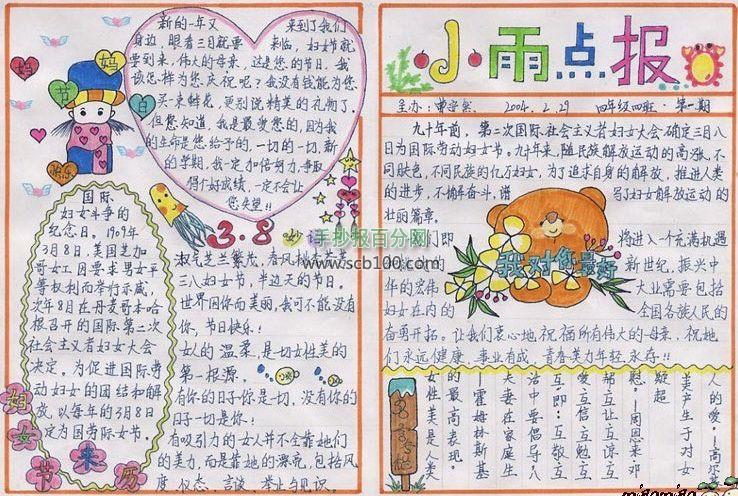 新的一年又来到了我们
身边，眼看三月就要来临，妇女节就
要到来，伟大的母亲，这是您的节日。我
该怎样为您庆祝呢？我没有钱能为您
买一束鲜花，更别说精美的礼物了。
但您知道，我是最爱您的，因为我
的生命是您给予的，一切的一切，新
的学期，我一定加倍努力，争取
得个好成绩，一定不会让
您失望！！
妈
妈
节
日
快乐
国际
妇女斗争的
纪念日。1909年
3月8日，美国芝加
哥女工因要求男女平
等权利而举行示威，
次年8日在丹麦哥本哈
根召开的国际第二次
社会主义者妇女大会
决定。为促进国际劳
动妇女的团结和解
放，以每年的3月8日
定为国劳际女节。
妇女节来历
3.8妙语
手抄报百分网
www.scb100.com
淑气芝兰繁茂，春风
三八妇女节，半边天的节日。
世界因你而美丽，我可不能没有
你，节日快乐！
女人的温柔，是一切女性美的
第一根源。
有你的日子一切是你，没有你的
日子一切是你！
有吸引力的女人并不会靠她们
的美力，而是靠她的漂亮，包括风
度、仪态、言谈、举止与见识。
小雨点报
主办：曹 2004.2.29 四年级四班·第一期
九十年前，第二次国际社会主义者妇女大会确定三月八
日为国际劳动妇女节。九十年来，随民族解放运动的高涨，不
同肤色，不同民族的亿万妇女，为了追求自身的解放，推进人类
的进步，不懈奋斗，谱写了妇女解放运动的
壮丽篇章。
我们即将进入一个充满机遇
的新世纪，振兴中
华的宏伟大业需要包括
妇女在内的全国各族人民的
奋勇开拓。让我们衷心地祝福所有伟大的母亲，祝她
们永远健康，事业有成，青春美力年轻永存！！
我对你最好
人的爱。——高尔
美产生于对女
疑超
慰。——周恩来·邓
帮、互让、互
爱、互信、互勉
互即：互敬、互
活中要倡导八
夫妻在家庭生
——霍姆林斯基
的最高表现。
女性美是人类